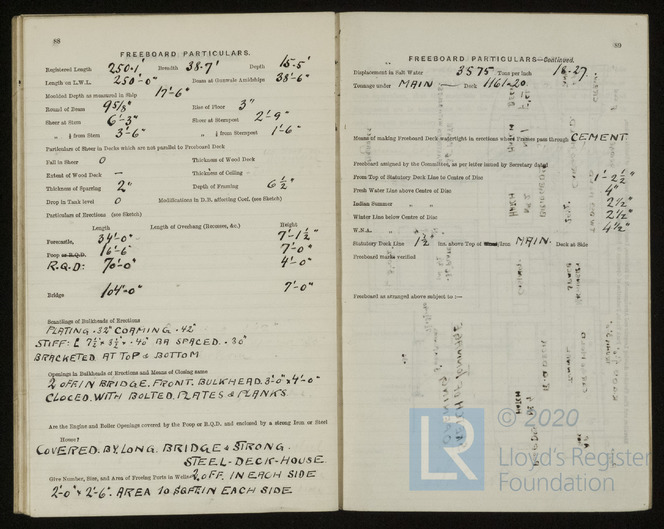 88
FREEBOARD PARTICULARS.
Registered Length 250·1' Breadth 38·7' Depth 15·5'
Length on L.W.L. 250'-0" Beam at Gunwale Amidships 38'-6"
Moulded Depth as measured in Ship 17'-6"
Round of Beam 9 5/8" Rise of Floor 3"
Sheer at Stem 6'-3" Sheer at Sternpost 2'-9"
" ⅛ from Stem 3'-6" " ⅛ from Sternpost 1'-6"
Particulars of Sheer in Decks which are not parallel to Freeboard Deck
Fall in Sheer 0 Thickness of Wood Deck
Extent of Wood Deck — Thickness of Ceiling
Thickness of Sparring 2" Depth of Framing 6½"
Drop in Tank level 0 Modifications in D.B. affecting Coef. (see Sketch)
Particulars of Erections (see Sketch)
Length Length of Overhang (Recesses, &c.) Height
Forecastle, 34'-0" 7'-1½"
Poop or R.Q.D. 16'-6" 7'-0"
R.Q.D: 70'-0" 4'-0"
Bridge 104'-0" 7'-0"
Scantlings of Bulkheads of Erections
PLATING ·32" COAMING ·42"
STIFF: L 7½" × 3½" × ·40" BA SPACED. 30"
BRACKETED AT TOP & BOTTOM
Openings in Bulkheads of Erections and Means of Closing same
2 OFF IN BRIDGE. FRONT. BULKHEAD. 3'-0" × 4'-0"
CLOCED. WITH BOLTED. PLATES & PLANKS
Are the Engine and Boiler Openings covered by the Poop or B.Q.D. and enclosed by a strong Iron or Steel
House?
COVERED. BY. LONG. BRIDGE & STRONG.
STEEL-DECK-HOUSE.
Give Number, Size, and Area of Freeing Ports in Wells 2 OFF. IN EACH SIDE
2'-0" × 2'-6". AREA 10 SQ FT IN EACH SIDE
89
FREEBOARD PARTICULARS—Continued.
Displacement in Salt Water 3575 Tons per inch 18·27
Tonnage under MAIN Deck 1161·20
Means of making Freeboard Deck watertight in erections where Frames pass through CEMENT
Freeboard assigned by the Committee, as per letter issued by Secretary dated
From Top of Statutory Deck Line to Centre of Disc 1'-2½"
Fresh Water Line above Centre of Disc 4"
Indian Summer " " 2½"
Winter Line below Centre of Disc 2½"
W.N.A. " 4½"
Statutory Deck Line 1½" ins. above Top of Iron MAIN. Deck at Side
Freeboard Marks verified
Freeboard as arranged above subject to :—
© 2020
LR
Lloyd's Register
Foundation